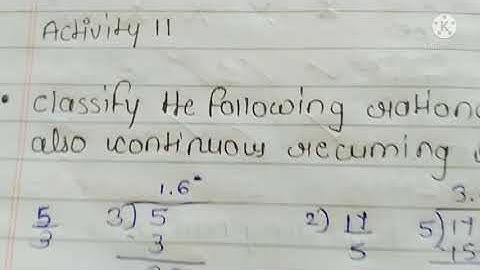 Activity 11
• Classify the following rationa
also continuous recurring
1.6•
5/3 3) 5
3
3.
2) 17/5 5) 17
-15
K
KINEMASTER